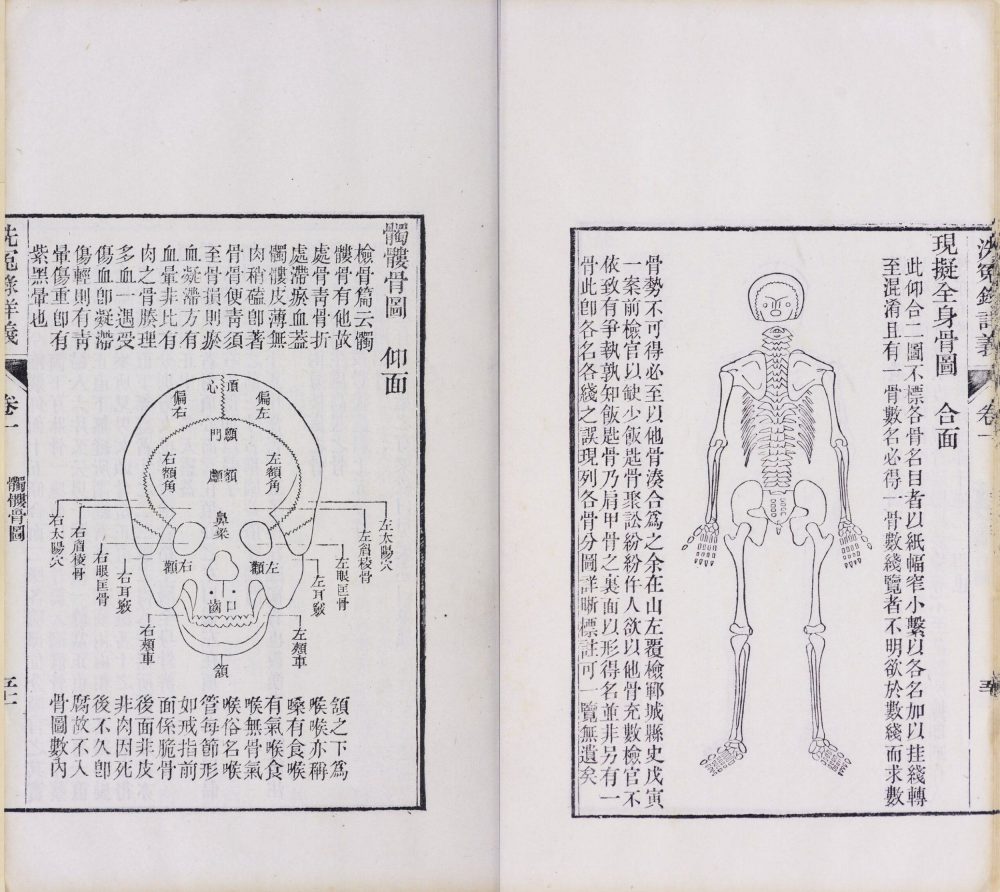 洗冤錄詳義 卷一
現擬全身骨圖 合面
此仰合二圖不標各骨名目者以紙幅窄小繫以各名加以挂綫轉
至混淆且有一骨數名必得一骨數綫覽者不明欲於數綫而求數
骨勢不可得必至以他骨湊合爲之余在山左覆檢鄆城縣史戊寅
一案前檢官以缺少飯匙骨聚訟紛紛仵人欲以他骨充數檢官不
依致有爭執孰知飯匙骨乃肩甲骨之裏面以形得名並非另有一
骨此卽各名各綫之誤現列各骨分圖詳晰標註可一覽無遺矣
髑髏骨圖 仰面
檢骨篇云髑
髏骨有他故
處骨靑骨折
處滯瘀血蓋
髑髏皮薄無
肉稍磕卽著
骨骨便靑須
至骨損則瘀
血凝滯方有
血暈非比有
肉之骨腠理
多血一遇受
傷血卽凝滯
傷輕則有靑
暈傷重卽有
紫黑暈也
頂心
偏左
偏右
顖門
額顱
左額角
右額角
鼻梁
左顴
右顴
口
齒
頷
左太陽穴
左眉棱骨
左眼匡骨
左耳竅
左頰車
右太陽穴
右眉棱骨
右眼匡骨
右耳竅
右頰車
頷之下爲
喉喉亦稱
嗓有食喉
有氣喉食
喉無骨氣
喉俗名喉
管每節形
如戒指前
面係脆骨
後面非皮
非肉因死
後不久卽
腐故不入
骨圖數內
洗冤錄詳義 卷一 髑髏骨圖